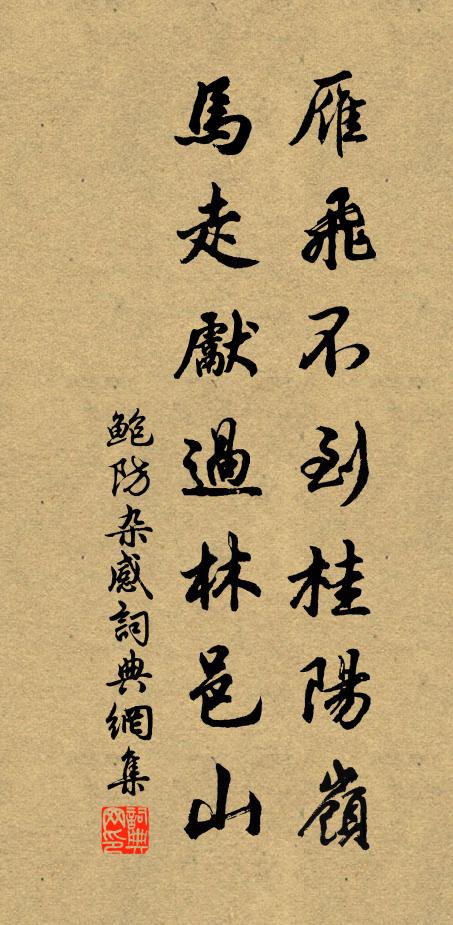 雁飛不到桂陽嶺
馬走獻過林邑山
鮑防雜感詞典網集
詞典網印